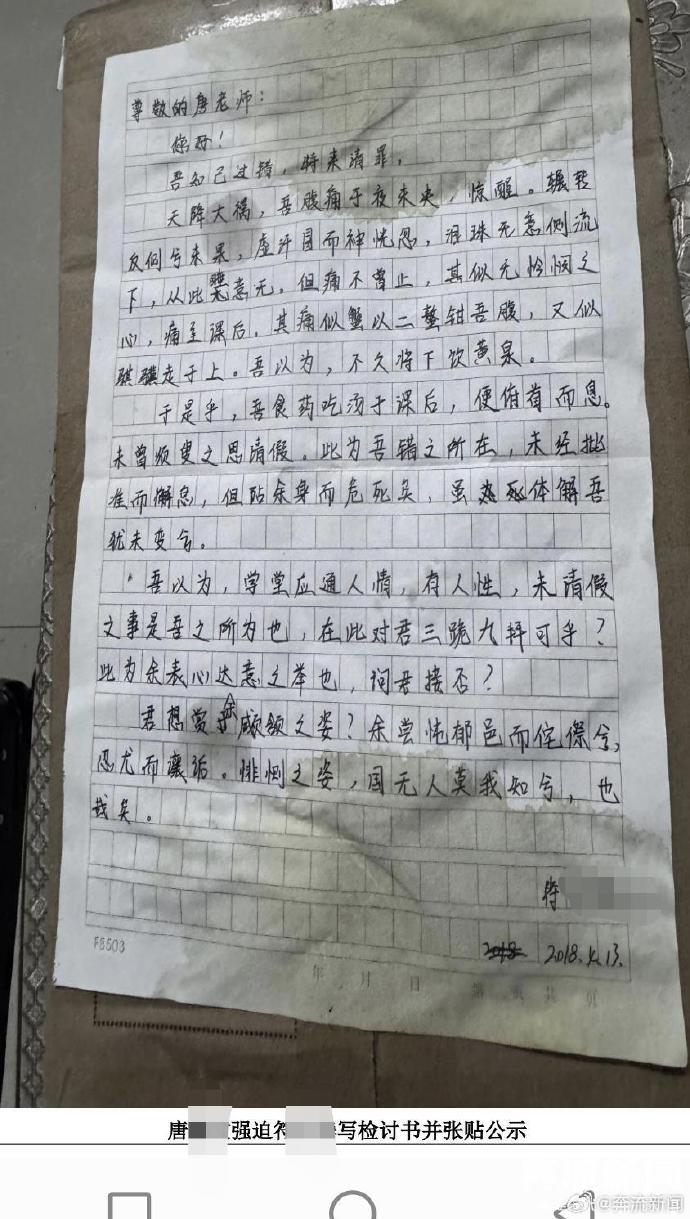 尊敬的唐老师：
你好！
吾知己过错，特来请罪，
天降大祸，吾腹痛于夜未央，惊醒。辗转
反侧兮未果，虚汗冒而神恍忽，泪珠无意侧流
下，从此意无，但痛不曾止，其似无怜悯之
心，痛至课后，其痛似蟹以二螯钳吾腹，又似
骐骥走于上。吾以为，不久将下饮黄泉。
于是乎，吾食药吃汤于课后，便俯首而息。
未曾须臾之思请假。此为吾错之所在，未经批
准而懈息，但阽余身而危死矣，虽死体解吾
犹未变兮。
吾以为，学堂应通人情，有人性，未请假
之事是吾之所为也，在此对君三跪九拜可乎？
此为余表心达意之举也，问君接否？
君想赏余顑颔之姿？余尝忳郁邑而侘傺兮，
忍尤而攘诟。悱恻之姿，国无人莫我知兮，也
哉矣。
符
2018 2018.4.13.
F8503
年 月 日 第 页 共 页
唐 强迫符 写检讨书并张贴公示
@奔流新闻